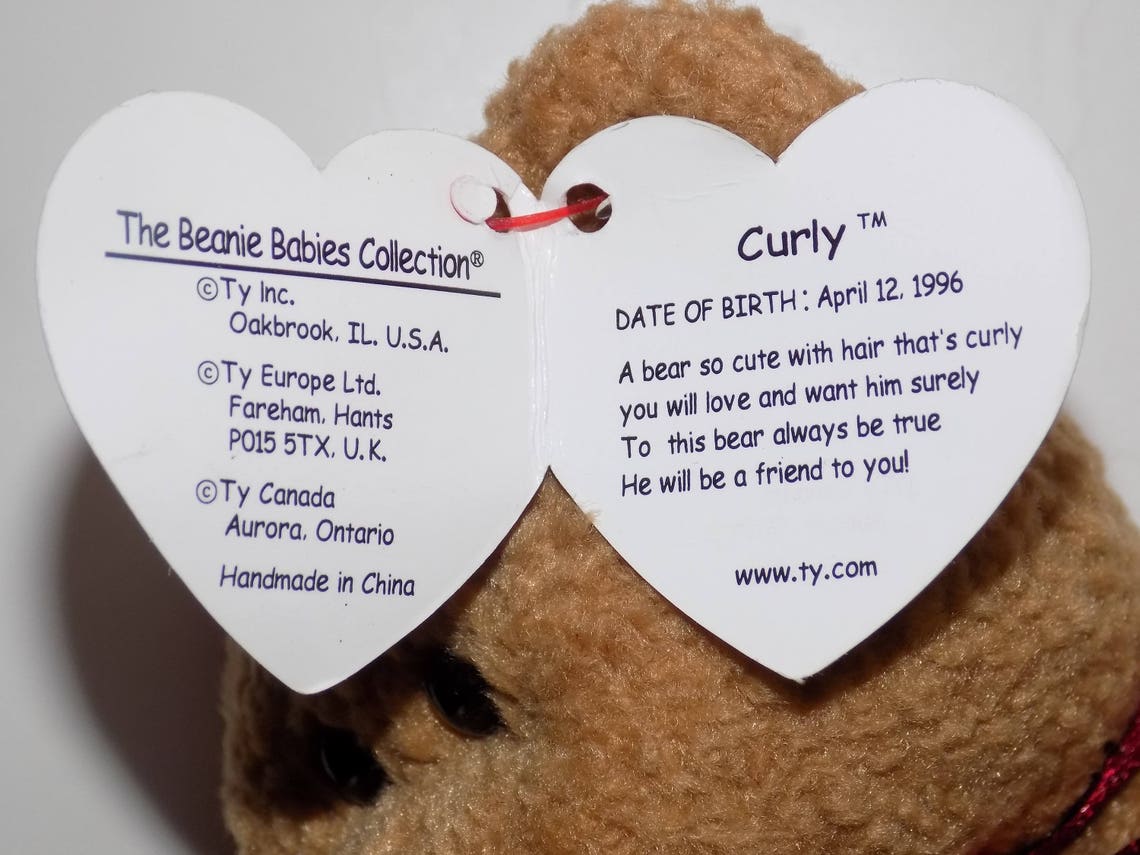 The Beanie Babies Collection®
©Ty Inc.
Oakbrook, IL. U.S.A.
©Ty Europe Ltd.
Fareham, Hants
P015 5TX, U.K.
©Ty Canada
Aurora, Ontario
Handmade in China
Curly ™
DATE OF BIRTH : April 12, 1996
A bear so cute with hair that's curly
you will love and want him surely
To this bear always be true
He will be a friend to you!
www.ty.com